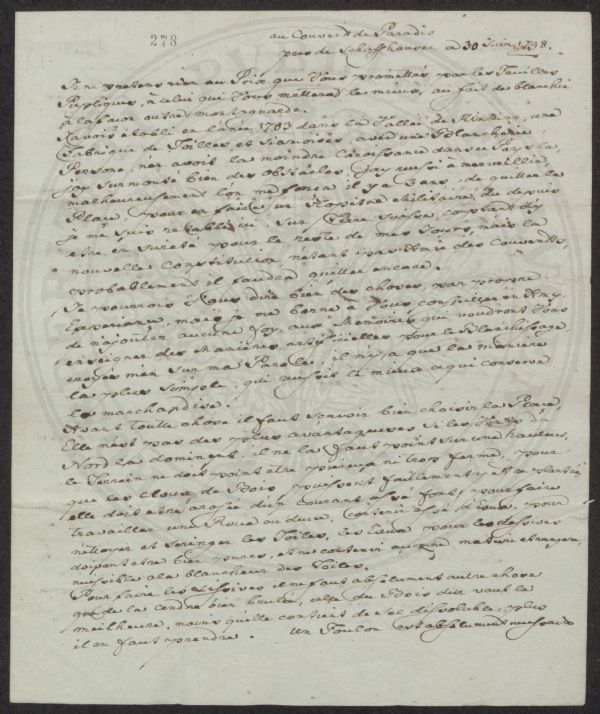 278
au Couvent de Paradis
pres de Schaffhausen a 30 Juin 1798.
Je ne pretens rien au Prix que Vous promettés par les Feuilles
Publiques, à celui qui Vous metterat le mieux, au fait de blanchir
à la façon outre montagnalde.
J'avois établi en l'anée 1783 dans la Vallée de Kinzing, une
Fabrique de Toilles et Siamoises, avec une Blancherie,
Persone n'en avoit la moindre Conoissance dans ce Pays la,
j'ay surmonté bien des obstacles, j'ay reussi à merveille,
malheureusement l'on me força il y a 3 ans, de quitter la
Place, pour en faire un Hopital Militaire, du depuis
je me suis retabli ici, sur Terre suisse, comptant d'y
etre en sureté pour le reste de mes Jours, mais la
nouvelle Constitution n'etant pas Amie des Couvents,
probablement il faudra quitter encore.
Je pourrois Vous dire bien des choses, par propre
Experience, mais je me borne à Vous conseiller en Amy,
de n'ajouter aucune foy aux Memoires qui voudront Vous
enseigner des Manieres artificielles pour le Blanchissage,
croyés m'en sur ma Parole, il n'y a que la maniere
la plus simple, qui reussis le mieux a qui conserve
la marchandise.
Avant Toutte chose il faut sçavoir bien choisir la Place,
Elle n'est pas des plus avantageuses si les Vents de
Nord la dominent, il ne la faut point sur une hauteur,
le Terrein ne doit point etre pierreux ni trop ferme, pour
que les Cloux de Bois puissent facilement y etre plantés
elle doit etre arosée d'un courant assé fort, pour faire
travailler une Roue ou deux, contenir assé d'eau, pour
nettoyer et seringer les Toiles, les Eaux pour les dessives
doivent etre bien pures, et ne contenir aucune matiere etrangere,
nuisible a la blancheur des Toiles.
Pour faire les Lessives il ne faut absolument autre chose
que de la cendre bien brulée, celle du Bois dur vaut la
meilheure, moins quelle contient de Sel dissoluble, plus
il en faut prendre. Un Foulon est absolument necessaire